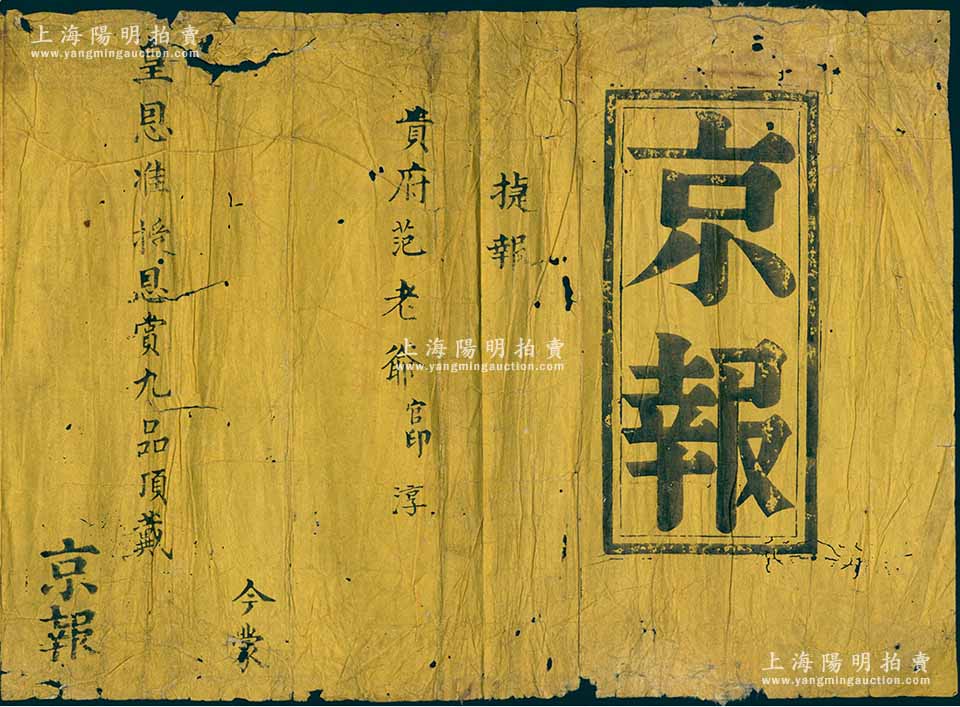 京報
捷報
貴府范老爺官印淳
今蒙
皇恩准授恩賞九品頂戴
京報
上海陽明拍賣
www.yangmingauction.com
上海陽明拍賣
www.yangmingauction.com
上海陽明拍賣
www.yangmingauction.com